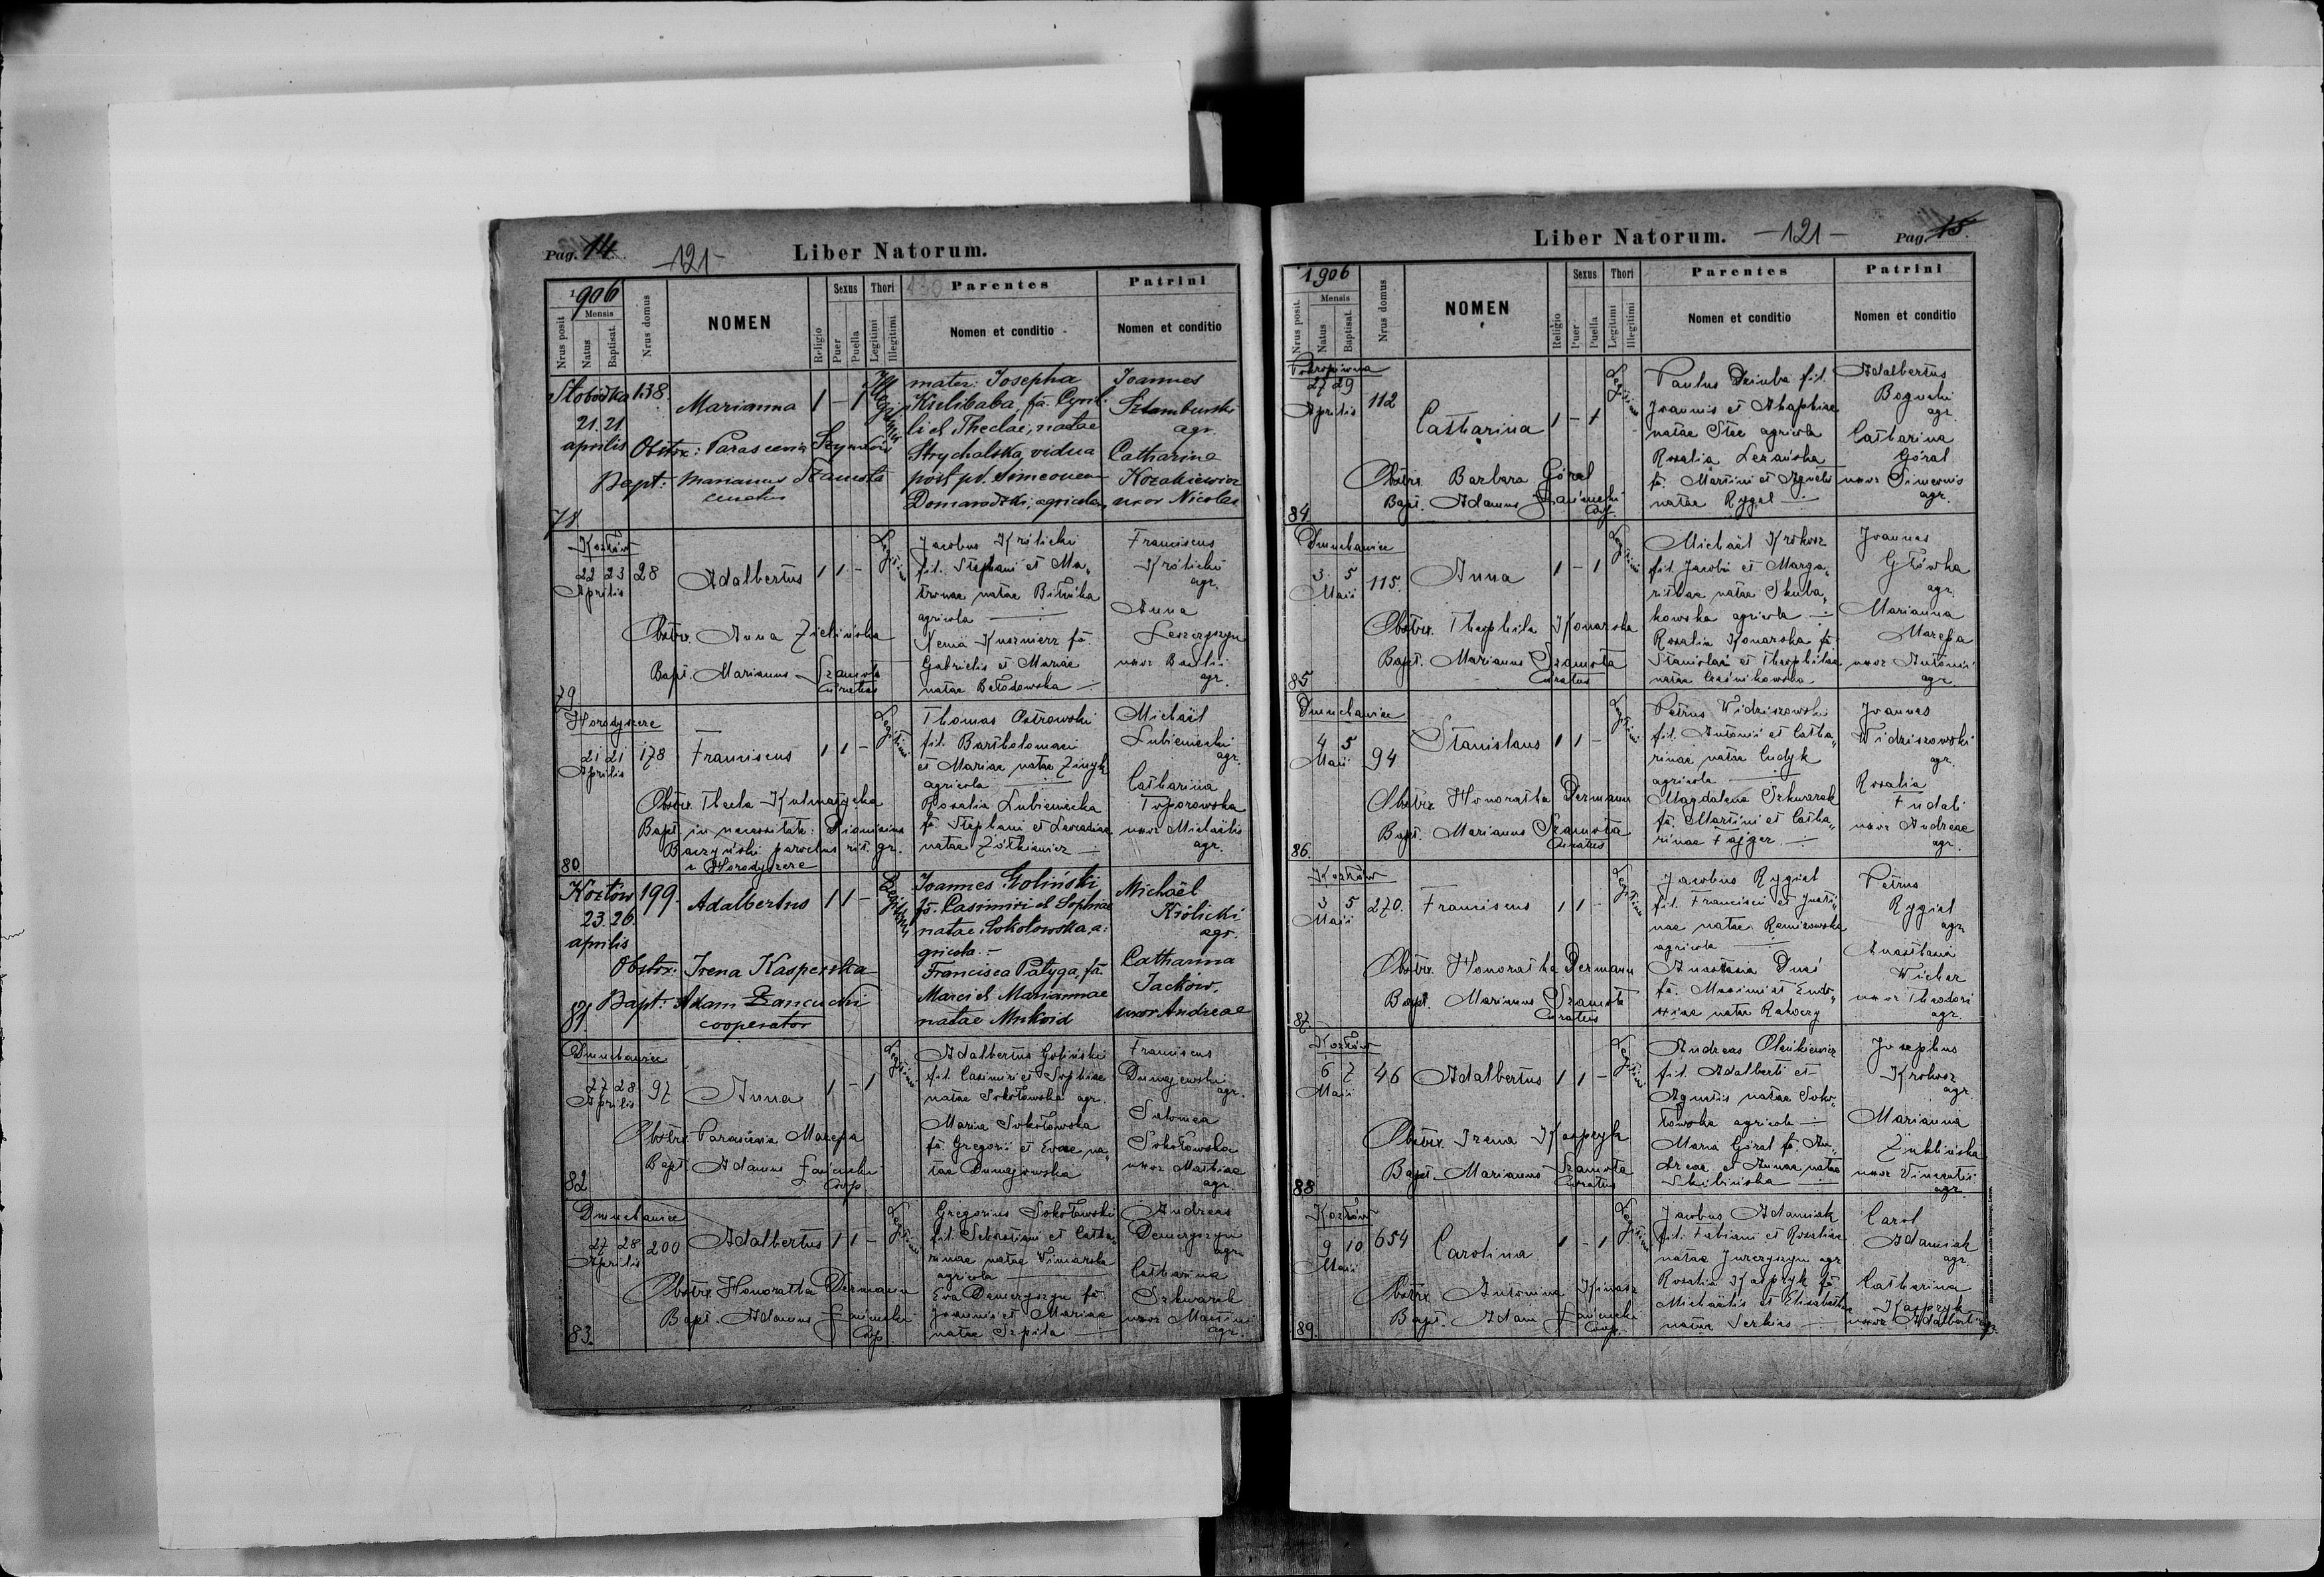 Pag. 14.
-121-
Liber Natorum.
1906
Mensis
Nrus posit
Natus
Baptisat.
Nrus domus
NOMEN
Religio
Sexus
Puer
Puella
Thori
Legitimi
Illegitimi
130
Parentes
Nomen et conditio
Patrini
Nomen et conditio
Słobodka 138
21. 21
aprilis
Marianna 1 - 1
Illegitimi
Obstrx: Parascevia
Bapt: Marianus Szamota
curatus
78
mater: Josepha
Kielibaba, fa. Cyril
li et Theclae, natae
Strychalska, vidua
post pd. Simeonem
Domarodzki, agricolam
Joannes
Sztamburski
agr.
Catharina
Kozakiewicz
uxor Nicolai
Kozłów
22 23 28
Aprilis
Adalbertus 1 1 -
Legitimi
Obstrx. Anna Zielińska
Bapt. Marianus Szamota
Curatus
79
Jacobus Królicki
fil. Stephani et Ma„
tronae natae Bilińska
agricola
Xenia Kusznierz fa.
Gabrielis et Mariae
natae Bełodowska
Franciscus
Królicki
agr.
Anna
Leszczyszyn
uxor Basilii
agr.
Horodyszcze
21 21 178
Aprilis
Franciscus 1 1 -
Legitimi
Obstrx. Thecla Kulmatycka
Bapt. in necessitate: Dionisius
Baczyński parochus rit. gr.
in Horodyszcze
80.
Thomas Ostrowski
fil. Bartholomaei
et Mariae natae Zinyk
agricola
Rosalia Lubieniecka
fa. Stephani et Leocadiae
natae Żółkiewicz
Michaël
Lubieniecki
agr.
Catharina
Toporowska
uxor Michaëlis
agr.
Kozłów 199.
23. 26.
aprilis
Adalbertus 1 1 -
Legitimi
Obstrx: Irena Kasperska
Bapt: Adam Łańcucki
cooperator
81
Joannes Goliński
fs. Casimiri et Sophiae
natae Sokołowska, a:
gricola. -
Francisca Pałyga, fa.
Marci et Mariannae
natae Mukoid
Michaël
Królicki
agr.
Catharina
Jacków,
uxor Andreae
Dmuchawiec
27 28 97
Aprilis
Anna 1 - 1
Legitimi
Obstrx. Parascevia Mazepa
Bapt. Adamus Łańcucki
Coop.
82
Adalbertus Goliński
fil. Casimiri et Sophiae
natae Sokołowska agr.
Maria Sokołowska
fa. Gregorii et Evae na„
tae Dunajewska
Franciscus
Dunajewski
agr.
Salomea
Sokołowska
uxor Mathiae
agr.
Dmuchawiec
27 28 200
Aprilis
Adalbertus 1 1 -
Legitimi
Obstrx. Honoratha Dermann
Bapt. Adamus Łańcucki
Coop.
83.
Gregorius Sokołowski
fil. Sebastiani et Catha„
rinae natae Winiarska
agricola
Eva Demczyszyn fa.
Joannis et Mariae
natae Szpila
Andreas
Demczyszyn
agr.
Catharina
Szkwarek
uxor Martini
agr.
Liber Natorum.
-121-
Pag. 15.
1906
Mensis
Nrus posit.
Natus
Baptisat.
Nrus domus
NOMEN
Religio
Sexus
Puer
Puella
Thori
Legitimi
Illegitimi
Parentes
Nomen et conditio
Patrini
Nomen et conditio
Pokropiwna
27 29 112
Aprilis
Catharina 1 - 1
Legitimi
Obstrx. Barbara Góral
Bapt. Adamus Łańcucki
Coop.
84.
Paulus Dziuba fil.
Joannis et Ahaphiae
natae Stec agricola
Rosalia Lezańska
fa. Martini et Agnetis
natae Rygiel
Adalbertus
Bogucki
agr.
Catharina
Góral
uxor Simeonis
agr.
Dmuchawiec
3. 5 115.
Maii
Anna 1 - 1
Legitimi
Obstrx. Theophila Konarska
Bapt. Marianus Szamota
Curatus
85
Michaël Krokosz
fil. Jacobi et Marga„
rithae natae Skuba„
kowska agricola
Rosalia Konarska fa.
Stanislai et Theophilae
natae
Joannes
Główka
agr.
Marianna
Mazepa
uxor Antonii
agr.
Dmuchawiec
4 5 94
Maii
Stanislaus 1 1 -
Legitimi
Obstrx Honoratha Dermann
Bapt. Marianus Szamota
Curatus
86.
Petrus Widziszowski
fil. Antonii et Catha„
rinae natae Cudyk
agricola
Magdalena Szkwarek
fa. Martini et Catha„
rinae Fajger
Joannes
Widziszowski
agr.
Rosalia
Fudali
uxor Andreae
agr.
Kozłów
3 5 270.
Maii
Franciscus 1 1 -
Legitimi
Obstrx. Honoratha Dermann
Bapt. Marianus Szamota
Curatus
87.
Jacobus Rygiel
fil. Francisci et Justi„
nae natae Remizowska
agricola
Anastasia Duś
fa. Maximi et Eudo„
xiae natae Rakoczy
Petrus
Rygiel
agr.
Anasthasia
Wichar
uxor Theodori
agr.
Kozłów
6 7 46
Maii
Adalbertus 1 1 -
Legitimi
Obstrx. Irena Kasprzyk
Bapt. Marianus Szamota
Curatus
88
Andreas Oleńkiewicz
fil. Adalberti et
Agnetis natae Soko„
łowska agricola
Maria Góral fa. An„
dreae et Annae natae
Skibińska
Josephus
Krokosz
agr.
Marianna
Zublińska
uxor Vincentii
agr.
Kozłów
9 10 654
Maii
Carolina 1 - 1
Legitimi
Obstrx. Antonina Kinasz
Bapt. Adam Łańcucki
Coop.
89.
Jacobus Adamiak
fil. Fabiani et Rosaliae
natae Jurczyszyn agr.
Rosalia Kasprzyk fa.
Michaëlis et Elisabethae
natae Serkies
Carol
Adamiak
agr.
Catharina
Kasprzyk
uxor Adalberti agr.